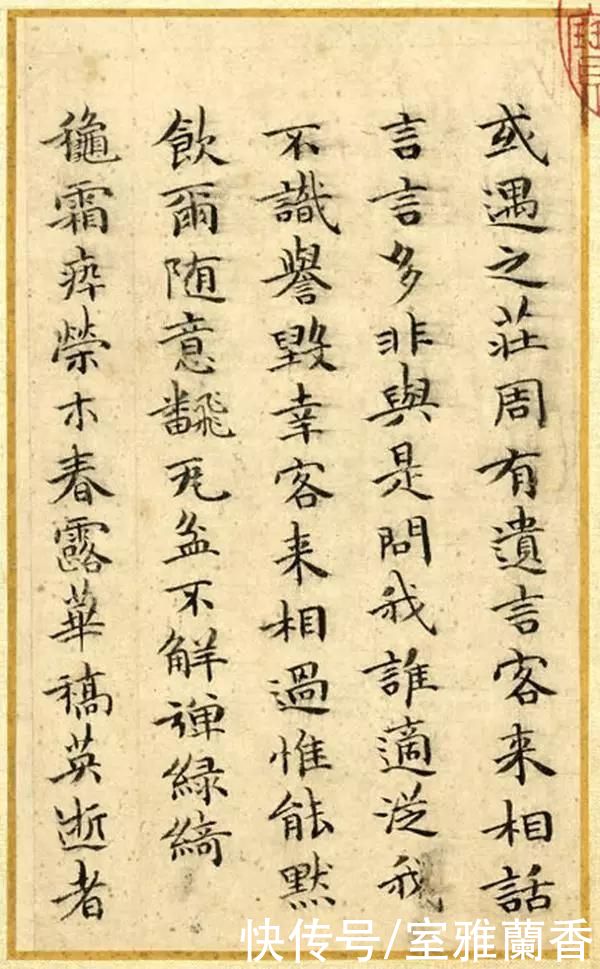 或遇之莊周有遺言客来相話
言言多非與是問我誰適從我
不識譽毀幸客来相過惟能黙
飲爾随意飜瓦盆不解彈緑綺
穐霜瘁榮木春露華稿英逝者
快传号/室雅蘭香